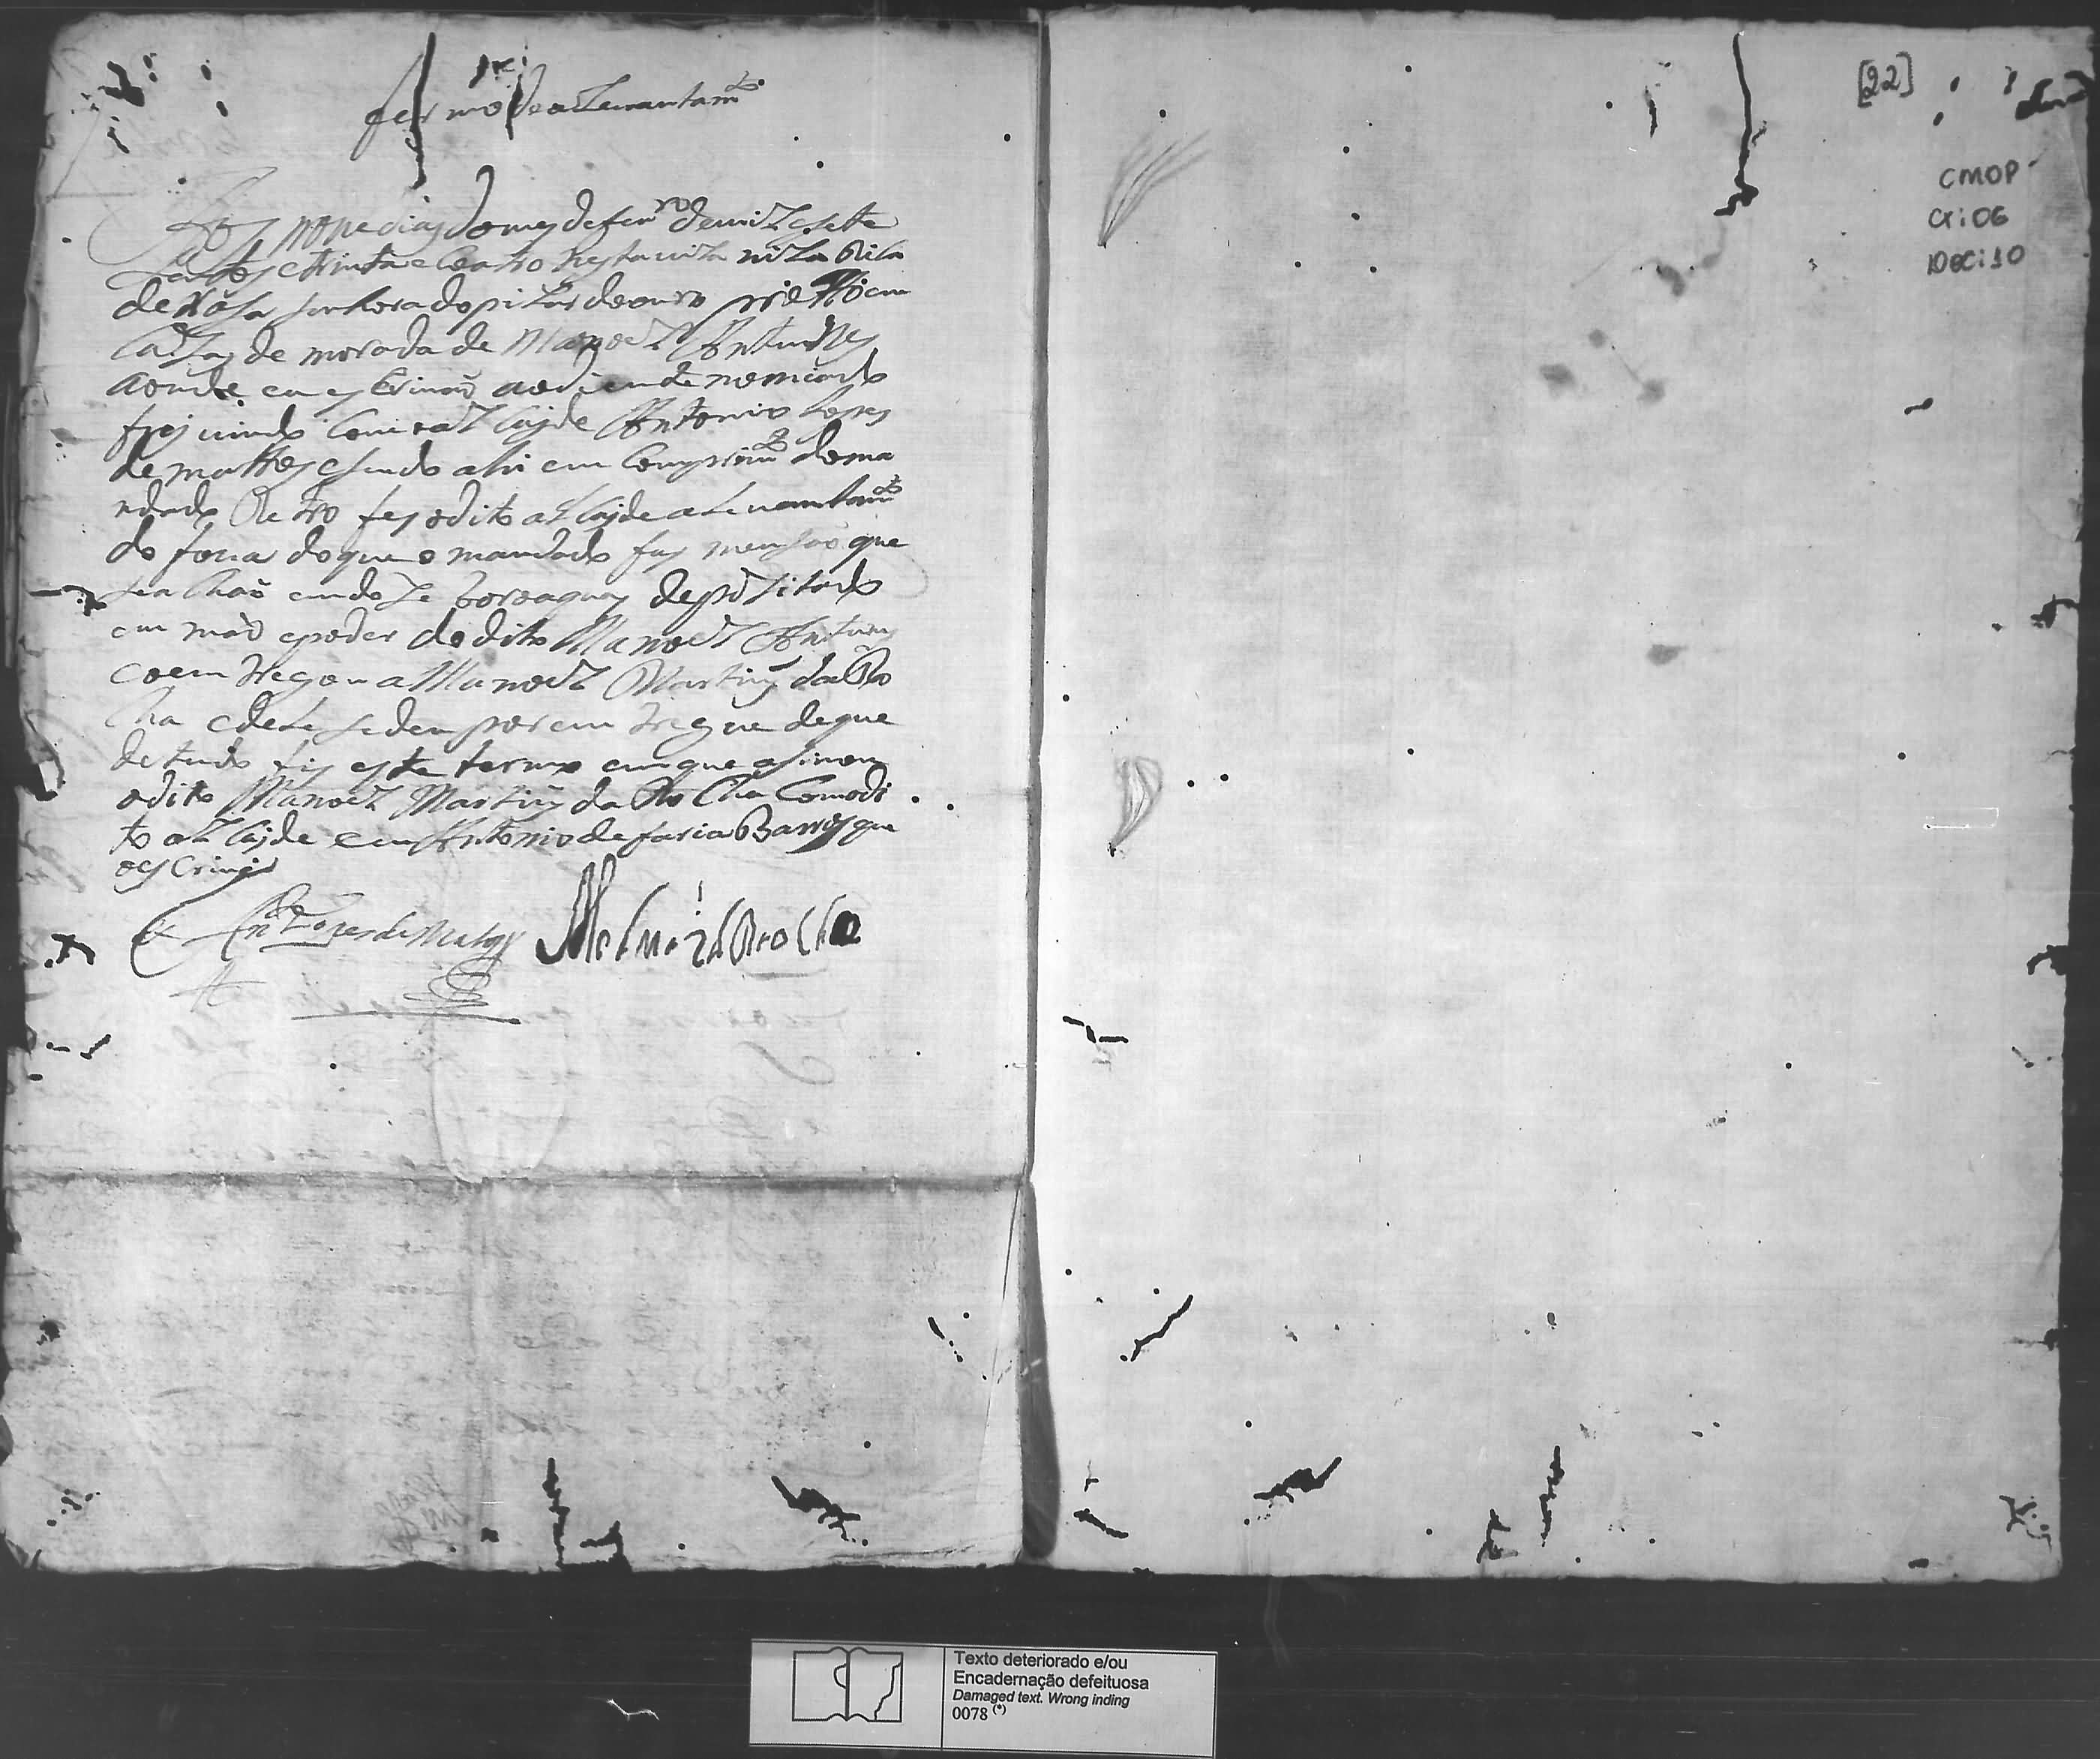 termo de a Levantam.to
Aos nove dias do mes de fevr.o de mil e sete
sentos e trinta e coatro nesta vila Rica
de Nosa senhora do pilar de ouro preto em
Cazas de morada de Manoel Antunes
aonde eu escrivão ao diente nomiado
fuy vindo Com o alCayde Antonio Lopes
de mattos e sendo ahi em Comprim.to do ma
ndado Retro fes o dito alCayde a Levantam.to
do foua do que o mandado fas mensão que
se a Chaõ em dose boroaguas depozitado
em mão e poder do dito Manoel Antunes
e o emtregou a Manoel Martins da Ro
Cha e dele se deu por emtregue de que
de tudo fis este termo em que asinou
o dito Manoel Martins da Ro Cha Com o di
to alCayde e eu Antonio de faria Barros que
o esCrevi
Ant.o Lopes de Mattos
[22]
CMOP
CX:06
DOC:10
Texto deteriorado e/ou
Encadernação defeituosa
Damaged text. Wrong inding
0078 (*)